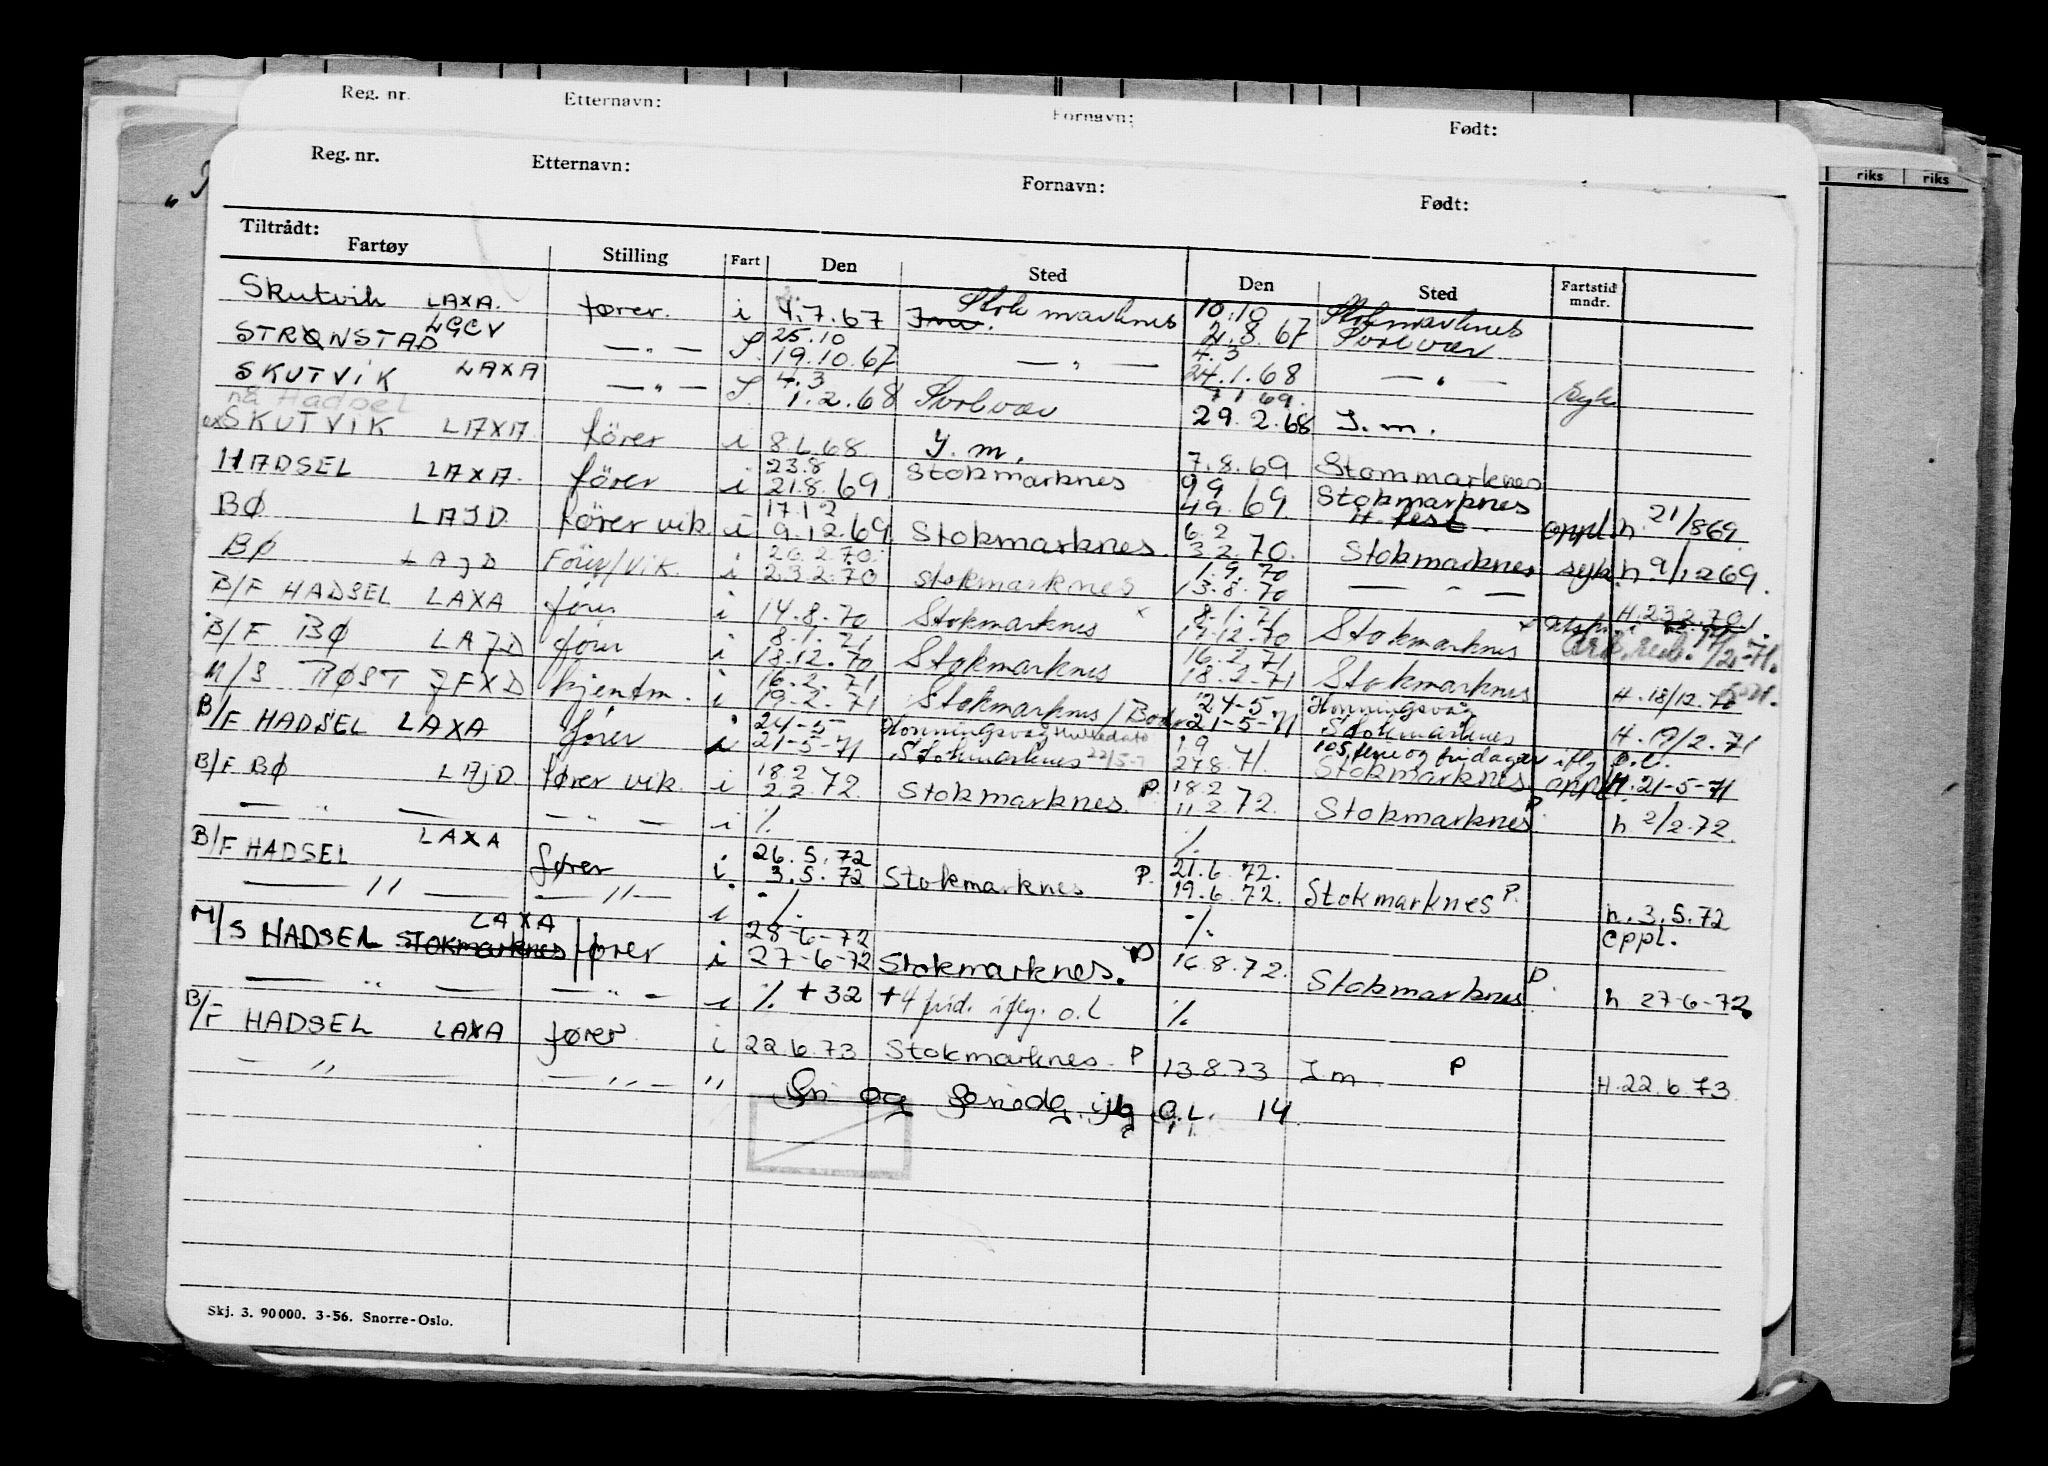 Reg. nr. Etternavn: Fornavn: Født:
Reg. nr. Etternavn: Fornavn: Født:
riks riks
Tiltrådt:
Fartøy Stilling Fart Den Sted Den Sted Fartstid mndr.
Skutvik LAXA. fører. i 4.7.67 Stokmarknes 10.10 4.8.67 Stokmarknes
STRØNSTAD LGCV — " — S. 25.10 19.10.67 — " — 4.3 24.1.68 Svolvær
SKUTVIK LAXA — " — S. 4.3 1.2.68 Svolvær 7.1.69. 29.2.68 — " — syk
nå Hadsel
ex SKUTVIK LAXA fører i 8.6.68 J.m. 7.8.69 J.m.
HADSEL LAXA. fører i 23.8 21.8.69 Stokmarknes 9.9 4.9.69 Stommarknes
BØ LAJD fører vik. i 17.12 9.12.69 Stokmarknes. 6.2 3.2.70. Stokmarknes oppl. h. 21/869.
BØ LAJD Fører/vik. i 26.2.70. 23.2.70 Stokmarknes 1.9.70 13.8.70 Stokmarknes syk. h 9/1269.
B/F HADSEL LAXA fører i 14.8.70 Stokmarknes 8.1.71 17.12.70 — " — H. 23.2.70
B/F BØ LAJD fører i 8.1.71 18.12.70 Stokmarknes 16.2.71 18.2.71 Stokmarknes
M/S RØST JFXD kjentm. i 16.2.71 19-2.71 Stokmarknes/Bodø 24-5 21-5-71 Stokmarknes H. 18/12.70
B/F HADSEL LAXA fører i 24-5 21-5-71 Honningsvåg Stokmarknes 22/5-7 1.9 27.8.71. Honningsvåg Stokmarknes H. 19/2.71
105 ferie og fridager iflg o.l.
B/F BØ LAJD fører vik. i 18.2 2.2.72. Stokmarknes. P. 18.2 11.2.72. Stokmarknes oppl. H. 21-5-71
— " — — " — i % % Stokmarknes P. h 2/2.72
B/F HADSEL LAXA fører i 26.5.72 3.5.72 Stokmarknes P. 21.6.72. 19.6.72. Stokmarknes P.
— " — — " — i % % h. 3.5.72 oppl.
M/S HADSEL Stokmarknes LAXA fører i 28-6-72 27-6-72 Stokmarknes. P 16.8.72. Stokmarknes P.
— " — — " — i % + 32 + 4 frid. iflg. o.l % h 27-6-72
B/F HADSEL LAXA fører i 22.6.73 Stokmarknes. P 13.8.73 J m P
— " — — " — " H. 22.6.73
Fri og feriedg. iflg O.L. 14
Skj. 3. 90000. 3-56. Snorre-Oslo.